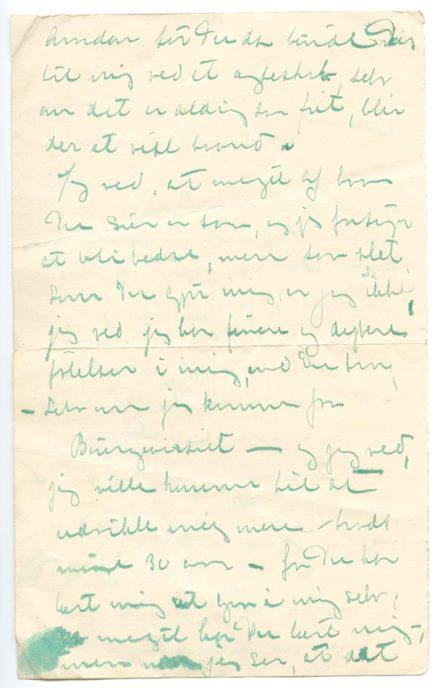 hvordan tör De da binde Dem
til mig ved et ægteskab, selv
om det er aldrig saa frit, blir
der et vist baand.
Jeg ved, at meget af hvad
De sier er sandt, og jeg forsöger
at bli bedre, men saa slet
som De gjör mig, er jeg ikke,
jeg ved jeg har finere og dybere
fölelser i mig, end De tror,
– Selv om jeg kommer fra
– og jeg ved,
jeg vilde komme til at
udvikle mig mere – trods
mine 30 aar – for De har
lært mig at tro i mig selv,
meget har De lært mig,
men jeg ser, at det